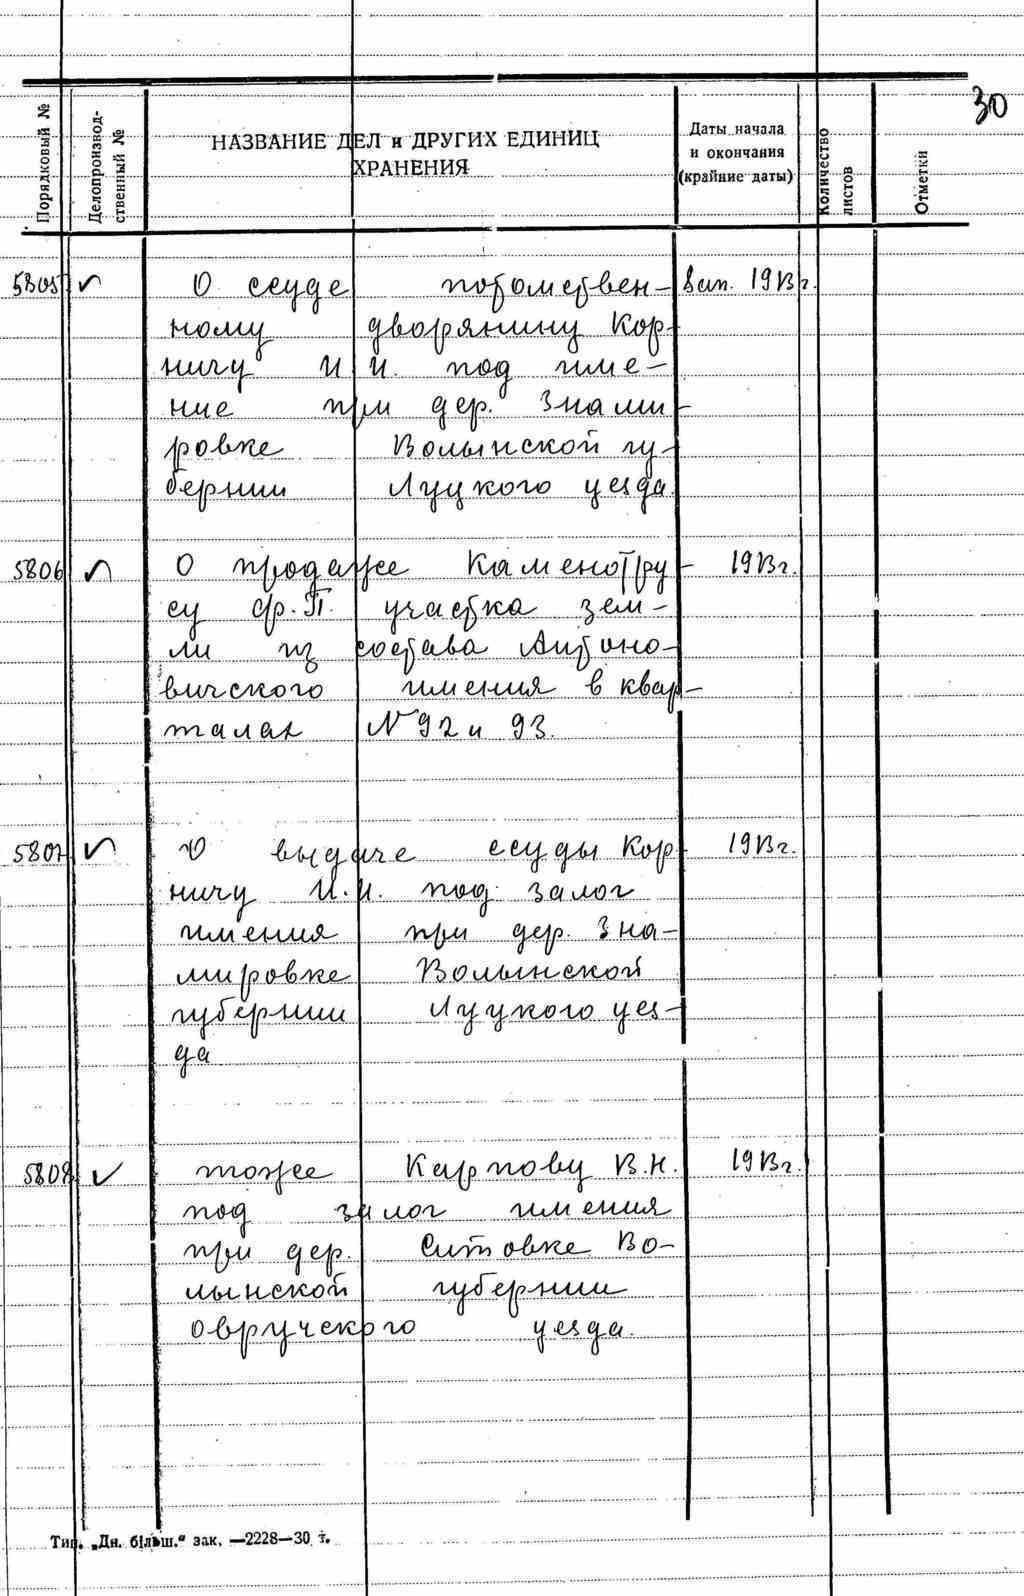 30
Порядковый №
Делопроизвод-
ственный №
НАЗВАНИЕ ДЕЛ и ДРУГИХ ЕДИНИЦ
ХРАНЕНИЯ
Даты начала
и окончания
(крайние даты)
Количество
листов
Отметки
5805 О ссуде потомствен- 1913 г.
ному дворянину Кор-
ничу И. И. под име-
ние при дер. Знами-
ровке Волынской гу-
бернии Луцкого уезда
5806 О продаже Каменотру- 1913 г.
су Ф. П. участка зем-
ли из состава Антоно-
вичского имения в квар-
талах N 92 и 93.
5807 О выдаче ссуды Кор- 1913 г.
ничу И. И. под залог
имения при дер. Зна-
мировке Волынской
губернии Луцкого уез-
да
5808 тоже Карпову В. Н. 1913 г.
под залог имения
при дер. Ситовке Во-
лынской губернии
овручского уезда.
Тип. „Дн. більш.“ зак. —2228—30 т.